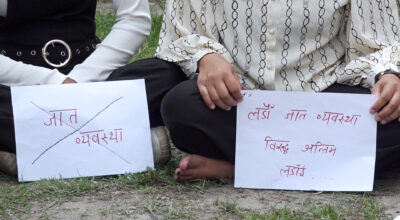 जात
व्यवस्था
लडौँ जात व्यवस्था
विरुद्ध अन्तिम
लडाईं